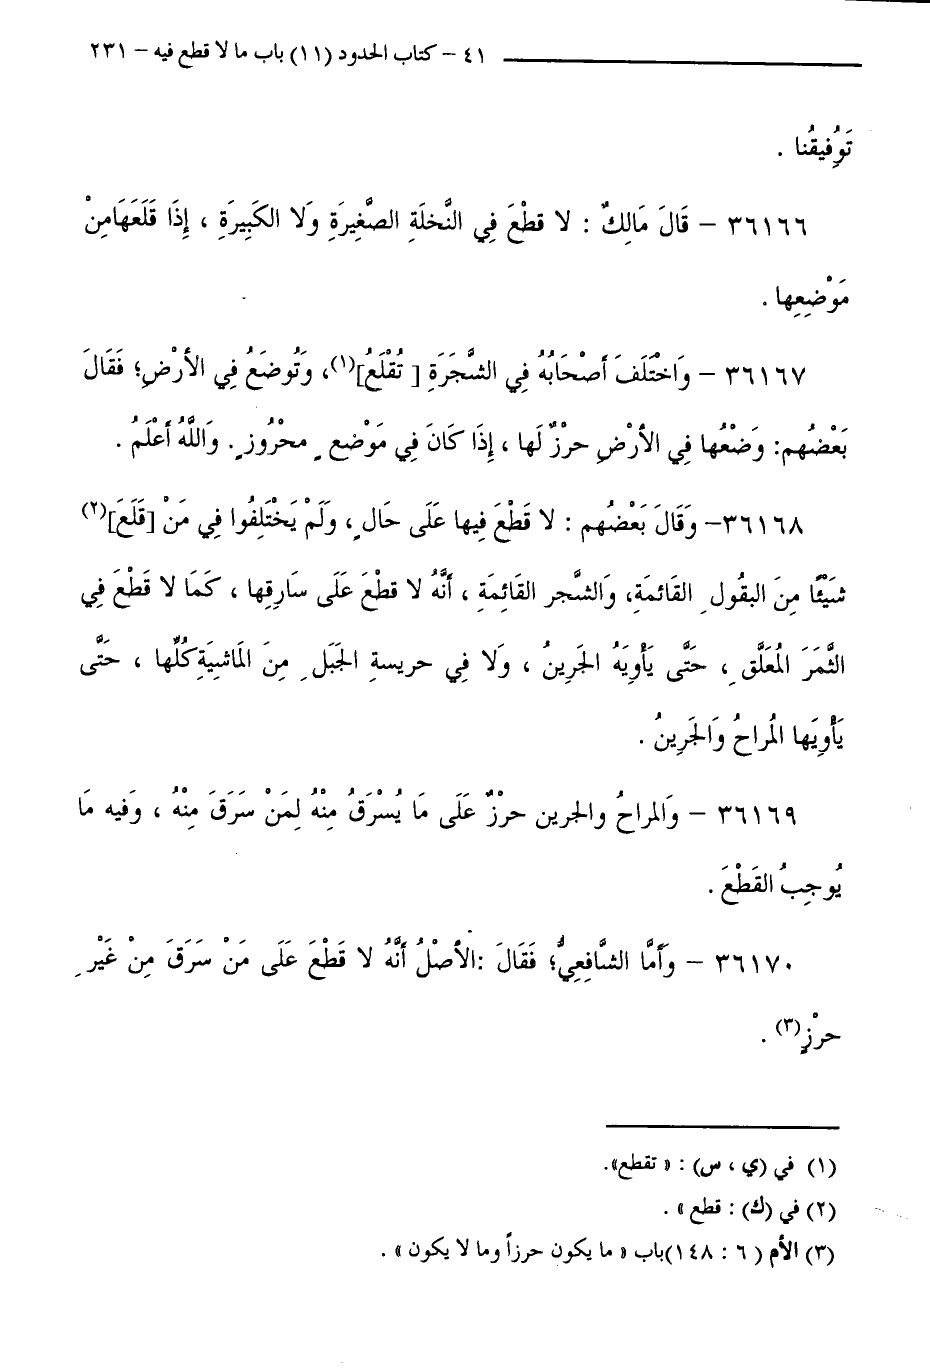 ٤١ – كتاب الحدود (١١) باب ما لا قطع فيه – ٢٣١
تَوْفِيقُنا .
٣٦١٦٦ – قَالَ مَالِكٌ : لا قطْعَ فِي النَّخلَةِ الصَّغِيرَةِ وَلا الكَبِيرَةِ ، إِذَا قَلَعَهَامِنْ
مَوْضِعِها .
٣٦١٦٧ – وَاخْتَلَفَ أصْحَابُهُ فِي الشَّجَرَةِ [ تُقْلَعُ](١)، وَتُوضَعُ فِي الأرْضِ؛ فَقَالَ
بَعْضُهم: وَضْعُها فِي الأرْضِ حرْزٌ لَها ، إِذَا كَانَ فِي مَوْضع ٍ محْرُوز ٍ. وَاللَّهُ أعْلَمُ .
٣٦١٦٨– وَقَالَ بَعْضُهم : لا قَطْعَ فِيها عَلَى حَالٍ ، وَلَمْ يَخْتَلِفُوا فِي مَنْ [قَلَعَ](٢)
شَيْئًا مِنَ البقُول ِ القَائمَةِ، وَالشَّجر القَائِمَةِ ، أَنَّهُ لا قطْعَ عَلَى سَارِقِها ، كَمَا لا قَطْعَ فِي
الثَّمَرَ المُعَلَّق ِ ، حَتَّى يَأْوِيَهُ الجَرِينُ ، وَلا فِي حريسةِ الجَبَل ِ مِنَ المَاشيَةِ كُلِّها ، حَتَّى
يَأْوِيَها المُراحُ وَالجَرِينُ .
٣٦١٦٩ – وَالمراحُ والجرين حرْزٌ عَلَى مَا يُسْرَقُ مِنْهُ لِمَنْ سَرَقَ مِنْهُ ، وَفيه مَا
يُوجِبُ القَطْعَ .
٣٦١٧٠ – وَأَمَّا الشَّافِعِيُّ؛ فَقَالَ :الأصْلُ أَنَّهُ لا قَطْعَ عَلَى مَنْ سَرَقَ مِنْ غَيْر ِ
حرْزٍ(٣) .
(١) في (ي ، س) : « تقطع».
(٢) في (ك) : قطع » .
(٣) الأم ( ٦ : ١٤٨)باب « ما يكون حرزاً وما لا يكون » .